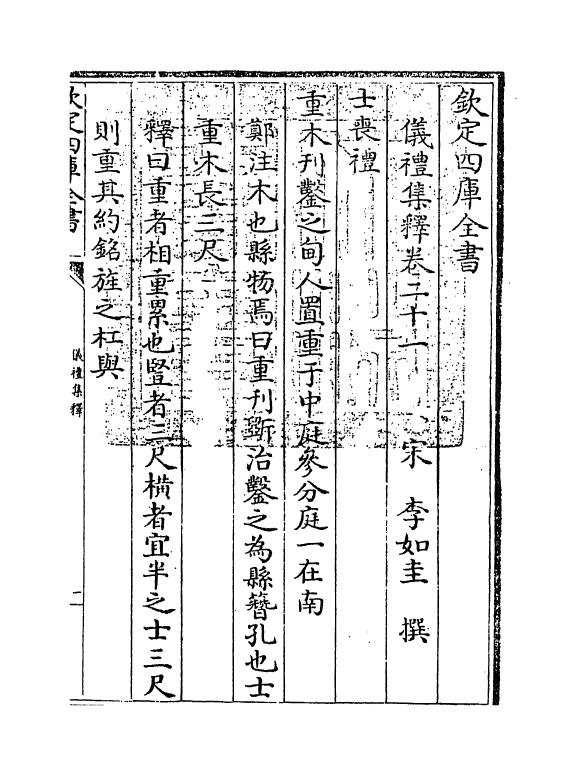 欽定四庫全書
儀禮集釋卷二十一　宋　李如圭　撰
士喪禮
重木刋鑿之甸人置重于中庭參分庭一在南
鄭注木也縣物焉曰重刋斲治鑿之為縣簪孔也士
重木長三尺
釋曰重者相重累也豎者三尺橫者宜半之士三尺
則重其約銘旌之杠與
欽定四庫全書
儀禮集釋